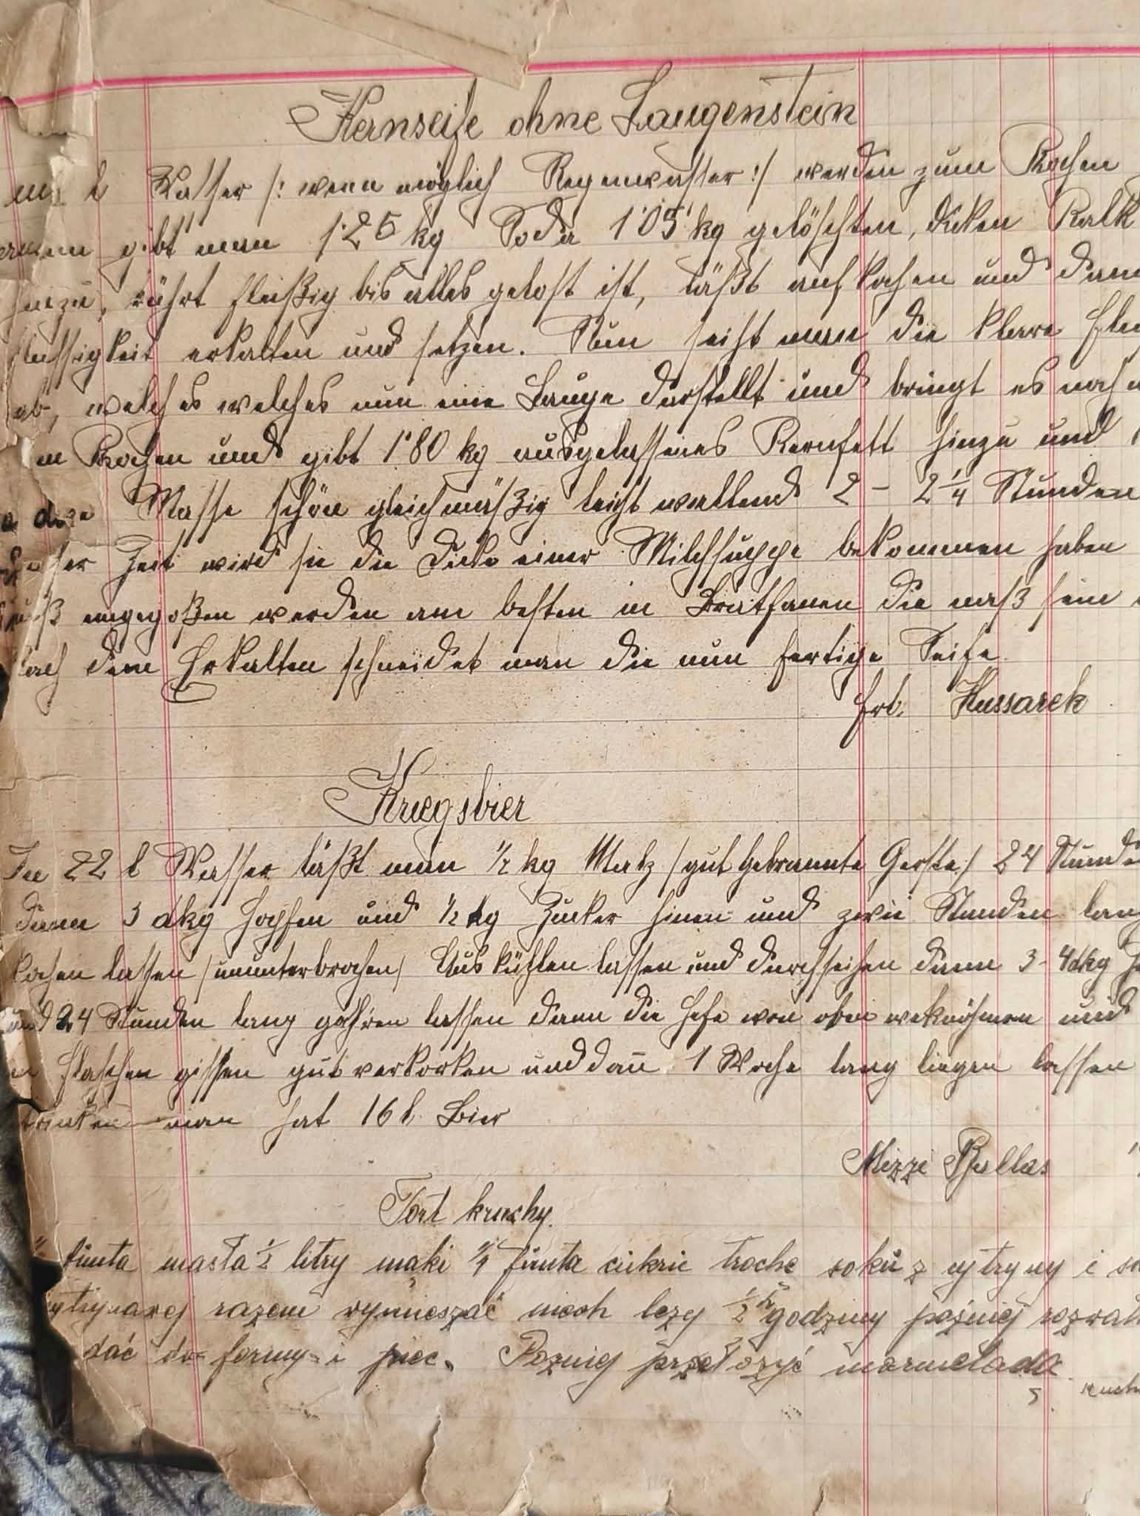 Kernseife ohne Laugenstein
l Wasser /: wenn möglich Regenwasser :/ werden zum Kochen
gibt man 1·25 kg Soda 1·05 kg gelöschten, dicken Kalk
hinzu, rührt fleißig bis alles gelöst ist, läßt aufkochen und dann
flüssigkeit erkalten und setzen. Nun seiht man die klare
ab, welches welches nun eine Lauge darstellt und bringt es noch
Kochen und gibt 1·80 kg ausgelassenes Kernfett hinzu und
Masse schön gleichmäßig leicht wallend 2 - 2 1/4 Stunden
Zeit wird sie die Dicke einer Milchsuppe bekommen haben
eingegoßen werden am besten in Bratfanen die naß sein
nach dem Erkalten schneidet man die nun fertige Seife.
Hussarek
Kriegsbier
In 22 l Wasser läßt man 1/2 kg Malz /gut gebrannte Gerste/ 24 Stunden
dann 3 dkg Hopfen und 1/2 kg Zucker hinein und zwei Stunden lang
kochen lassen /ununterbrochen/ Auskühlen lassen und durchseihen dann 3-4 dkg
und 24 Stunden lang gähren lassen dann die Hefe von oben weknöhmen und
Flaschen gissen gut verkorken und dan̄ 1 Woche lang liegen lassen
trinken - man hat 16 l. Bier
Mizzi
Tort kruchy.
funta masła 1/2 litry mąki 1/4 funta cukru troche soku z cytryny i
razem wymieszać niech leży 1/2 godziny poźniej
dać do formy i piec. Pozniej przełozyć marmelada